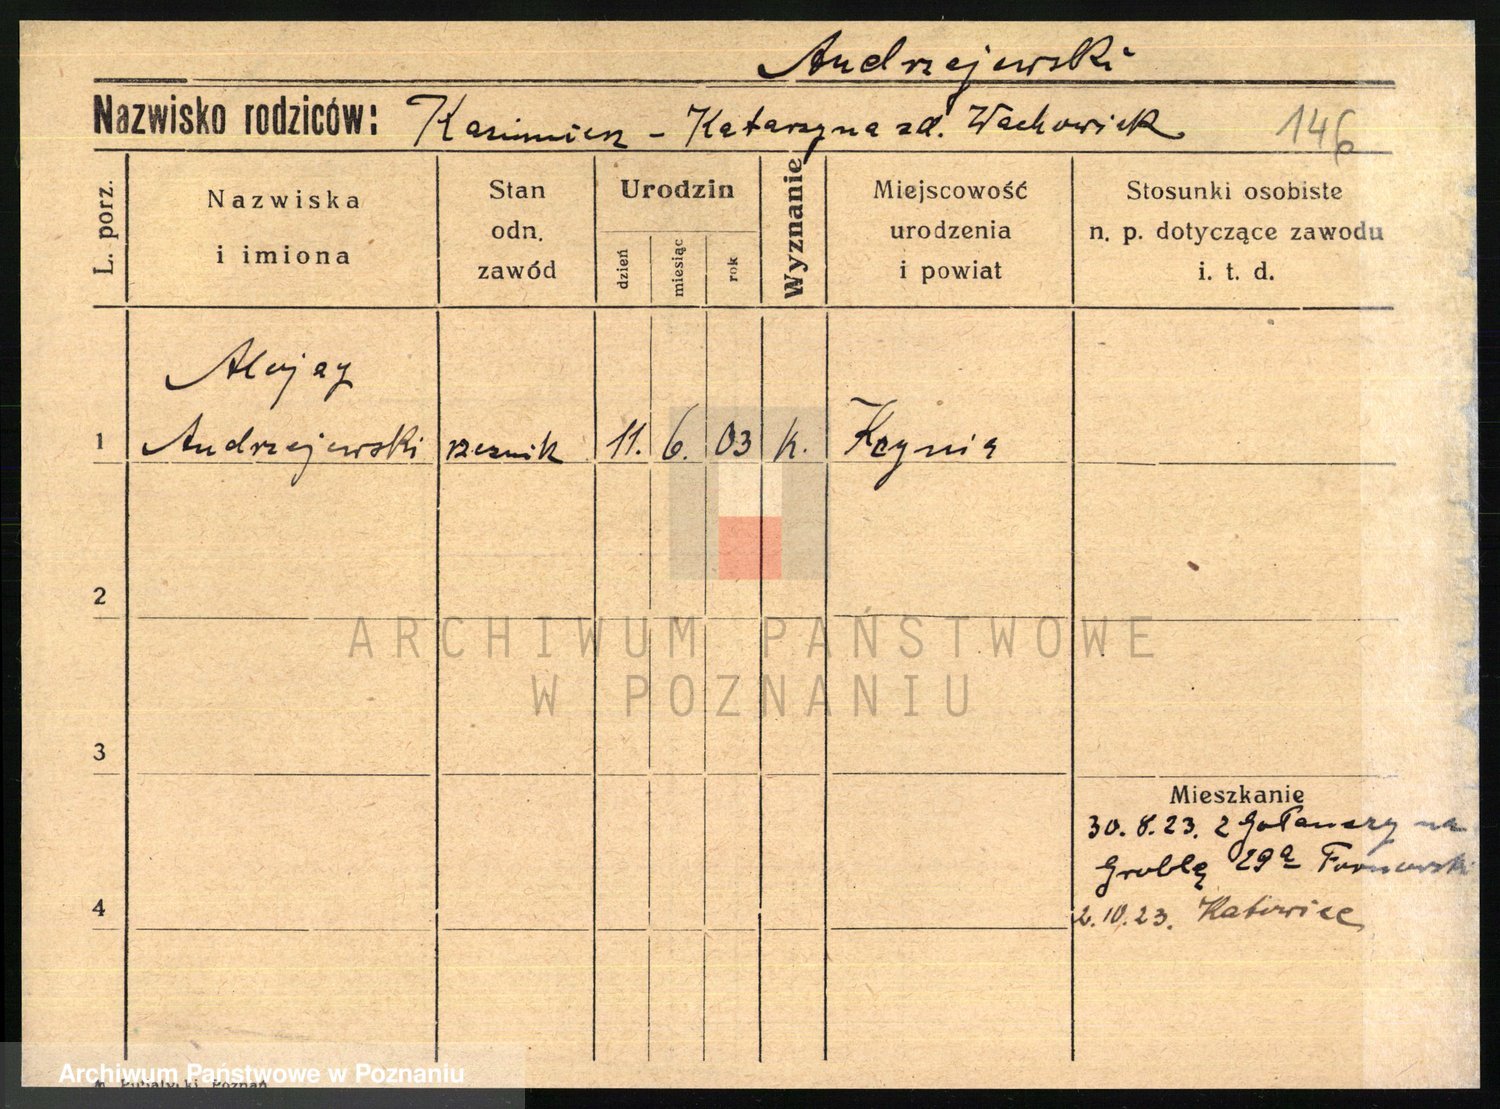 Andrzejewski
Nazwisko rodziców: Kazimierz - Katarzyna zd. Wachowiak 146
L. porz.
Nazwiska
i imiona
Stan
odn.
zawód
Urodzin
dzień
miesiąc
rok
Wyznanie
Miejscowość
urodzenia
i powiat
Stosunki osobiste
n. p. dotyczące zawodu
i. t. d.
Alojzy
1 Andrzejewski rzeźnik 11. 6. 03 k. Kcynia
2
ARCHIWUM PAŃSTWOWE
W POZNANIU
3
Mieszkanie
30.8.23. z Gołańczy na
Groblę 29a
4
2.10.23. Katowice
Archiwum Państwowe w Poznaniu
Poznań